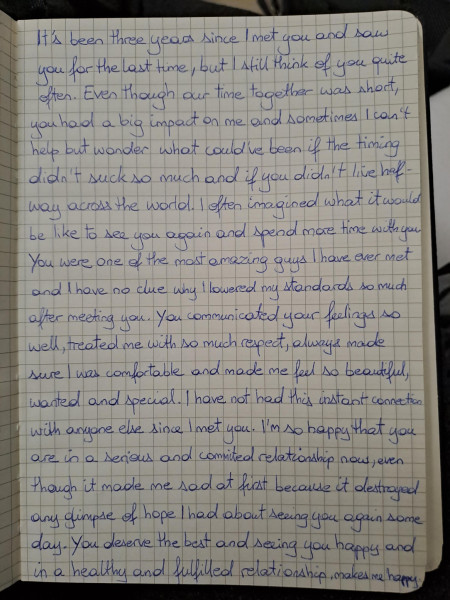 It's been three years since I met you and saw
you for the last time, but I still think of you quite
often. Even though our time together was short,
you had a big impact on me and sometimes I can't
help but wonder what could've been if the timing
didn't suck so much and if you didn't live half-
way across the world. I often imagined what it would
be like to see you again and spend more time with you
You were one of the most amazing guys I have ever met
and I have no clue why I lowered my standards so much
after meeting you. You communicated your feelings so
well, treated me with so much respect, always made
sure I was comfortable and made me feel so beautiful,
wanted and special. I have not had this instant connection
with anyone else since I met you. I'm so happy that you
are in a serious and commited relationship now, even
though it made me sad at first because it destroyed
any glimpse of hope I had about seeing you again some
day. You deserve the best and seeing you happy and
in a healthy and fulfilled relationship, makes me happy.